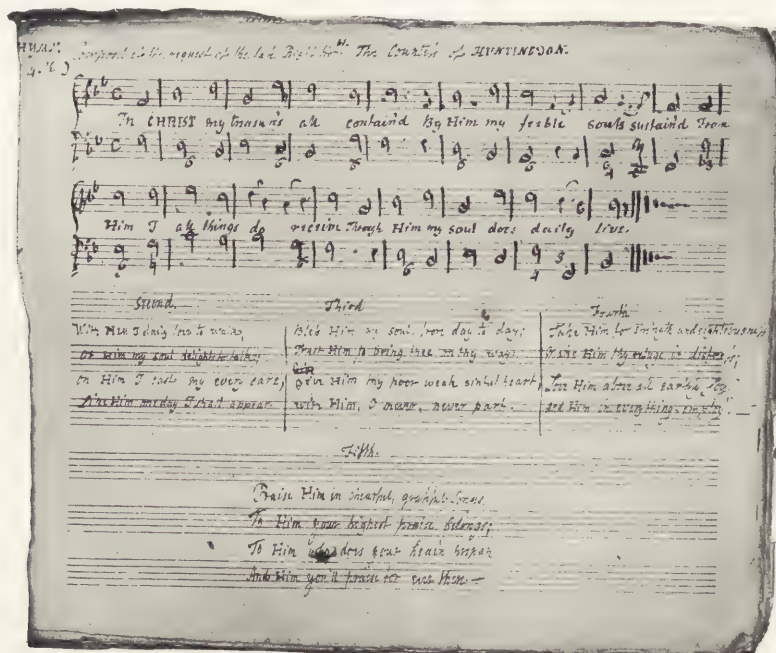 HYMN.
4.
Composed at the request of the late Right Hon.ble The Countess of HUNTINGDON.
In CHRIST my treasure's all contain'd By Him my feeble soul's sustain'd From
Him I all things do receive Through Him my soul does daily live.
Second
With Him I daily love to walk,
Of Him my soul delights to talk;
On Him I cast my every care,
Like Him one day I shall appear
Third
Bless Him my soul, from day to day;
Trust Him to bring thee on thy way;
Give Him my poor weak sinful heart,
With Him, I never, never part.
Fourth
Take Him for strength and righteousness
Make Him thy refuge in distress;
Love Him above all earthly joy
And Him in everything employ.
Fifth.
Praise Him in chearful, grateful Songs,
To Him your highest praise belongs;
To Him who does your heav'n prepare
And Him you'll praise for ever there